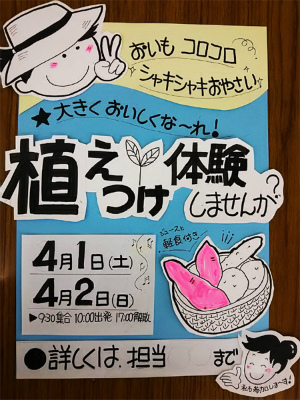 おいも コロコロ
シャキシャキおやさい
★大きくおいしくな〜れ!
植えつけ体験
しませんか?
ジュースと
軽食付き
4月1日(土)
4月2日(日)
▶9:30集合 10:00出発 17:00解散
●詳しくは、担当 まで
私も参加しま〜す!